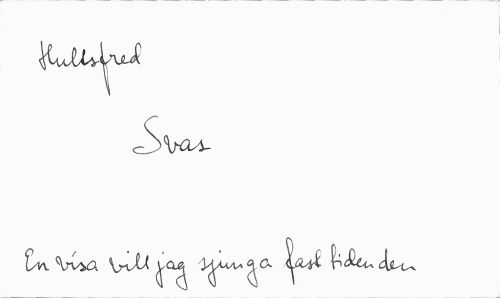 Hultsfred
Svas
En visa vill jag sjunga fast tiden den